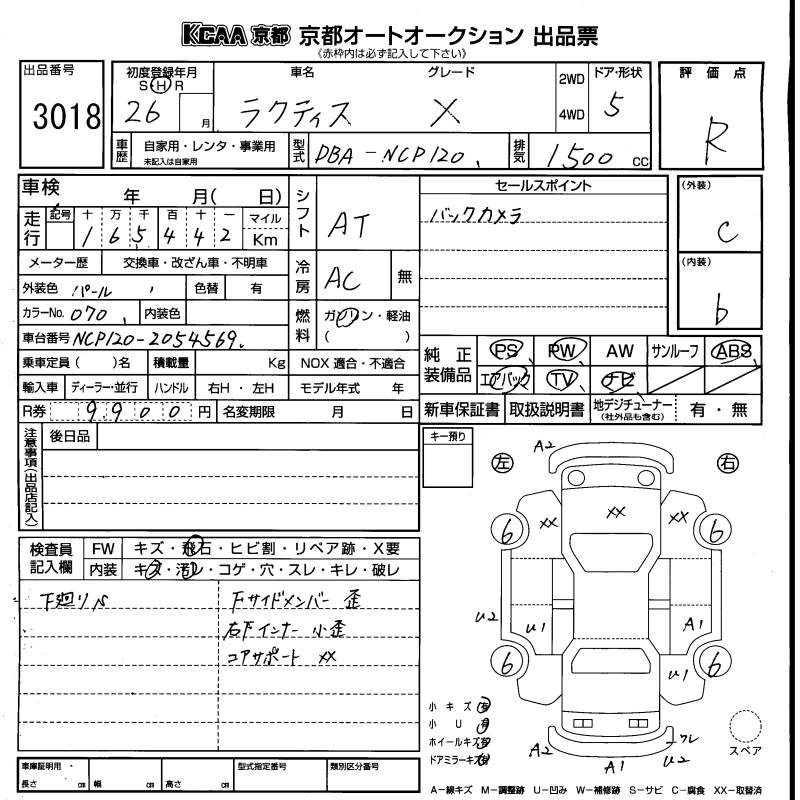 KCAA 京都 京都オートオークション 出品票
《赤枠内は必ず記入して下さい》
出品番号
3018
初度登録年月
S H R
26 月
車名
グレード
ラクティス X
2WD
4WD
ドア・形状
5
評価点
R
車歴
自家用・レンタ・事業用
未記入は自家用
型式
DBA-NCP120
排気
1500 CC
車検 年 月( 日)
走行
記号 十 万 千 百 十 一
1 6 5 4 4 2
マイル
Km
シフト
AT
セールスポイント
バックカメラ
(外装)
C
(内装)
b
メーター歴 交換車・改ざん車・不明車
冷房
AC
無
外装色 パール 色替 有
カラーNo. 070 内装色
燃料
ガソリン・軽油
( )
車台番号 NCP120-2054569
乗車定員( )名 積載量 Kg NOX 適合・不適合
輸入車 ディーラー・並行 ハンドル 右H・左H モデル年式 年
R券 9900 円 名変期限 月 日
純正装備品
PS PW AW サンルーフ ABS
エアバック TV ナビ
新車保証書 取扱説明書 地デジチューナー
(社外品も含む)
有・無
注意事項(出品店記入)
後日品
キー預り
左
右
検査員記入欄
FW キズ・飛石・ヒビ割・リペア跡・X要
内装 キズ・汚レ・コゲ・穴・スレ・キレ・破レ
下廻りS
下サイドメンバー 歪
右下インナー 小歪
コアサポート XX
A2
XX XX XX
6 6
U2 U1 A1
U1
6 6
A2 A1 U2
ワレ
小キズ 有
小U 有
ホイールキズ 有
ドアミラーキズ 有
スペア
車庫証明用・
長さ cm 幅 cm 高さ cm
型式指定番号
類別区分番号
A-線キズ M-調整跡 U-凹み W-補修跡 S-サビ C-腐食 XX-取替済